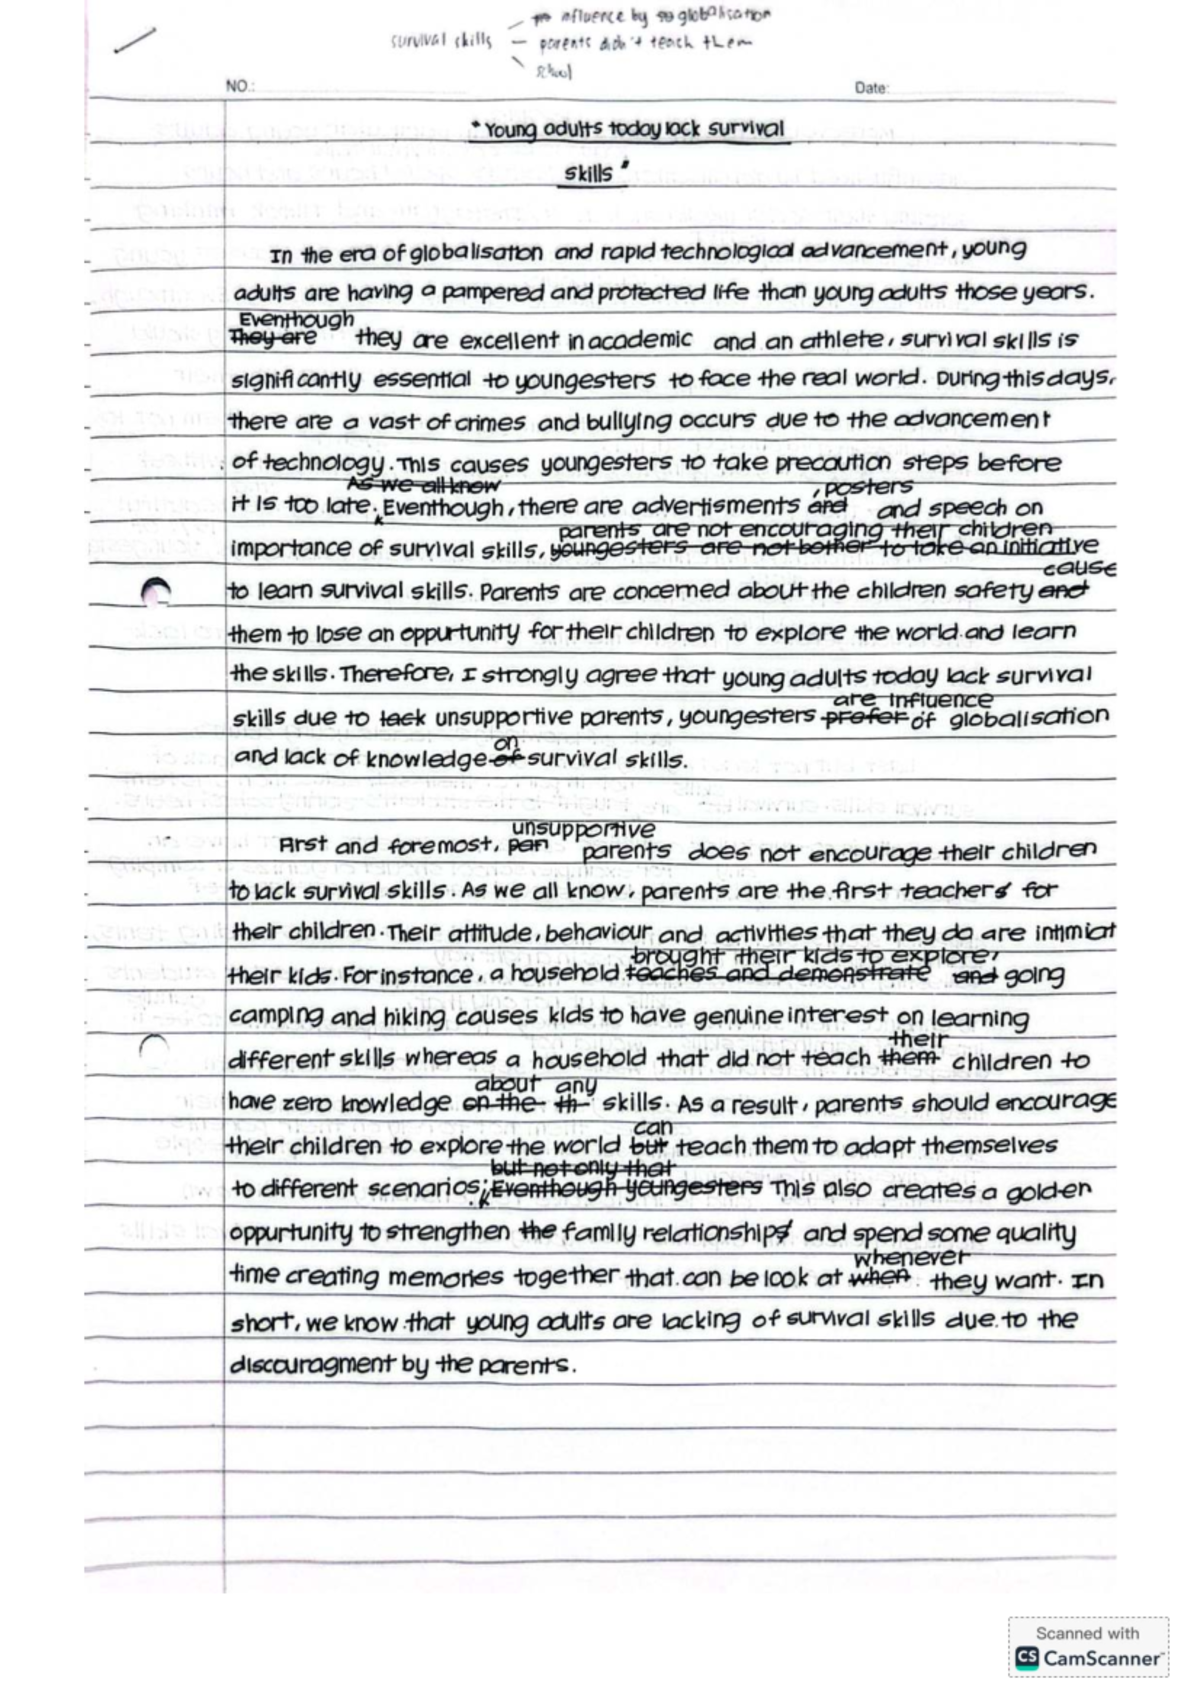 influence by globalisation
survival skills - parents didn't teach them
school
NO.: Date:
"Young adults today lack survival
skills"
In the era of globalisation and rapid technological advancement, young
adults are having a pampered and protected life than young adults those years.
Eventhough
They are they are excellent in academic and an athlete, survival skills is
significantly essential to youngesters to face the real world. During this days,
there are a vast of crimes and bullying occurs due to the advancement
of technology. This causes youngesters to take precaution steps before
As we all know , posters
it is too late. Eventhough, there are advertisments and and speech on
parents are not encouraging their children
importance of survival skills, youngesters are not bother to take an initiative
cause
to learn survival skills. Parents are concerned about the children safety and
them to lose an oppurtunity for their children to explore the world and learn
the skills. Therefore, I strongly agree that young adults today lack survival
are influence
skills due to lack unsupportive parents, youngesters prefer of globalisation
on
and lack of knowledge of survival skills.
unsupportive
First and foremost, par parents does not encourage their children
to lack survival skills. As we all know, parents are the first teachers for
their children. Their attitude, behaviour and activities that they do are intimiat
brought their kids to explore,
their kids. For instance, a household teaches and demonstrate and going
camping and hiking causes kids to have genuine interest on learning
their
different skills whereas a household that did not teach them children to
about any
have zero knowledge on the th skills. As a result, parents should encourage
can
their children to explore the world but teach them to adapt themselves
but not only that
to different scenarios; Eventhough youngesters This also creates a golden
oppurtunity to strengthen the family relationships and spend some quality
whenever
time creating memories together that can be look at when they want. In
short, we know that young adults are lacking of survival skills due to the
discouragment by the parents.
Scanned with
CS CamScanner